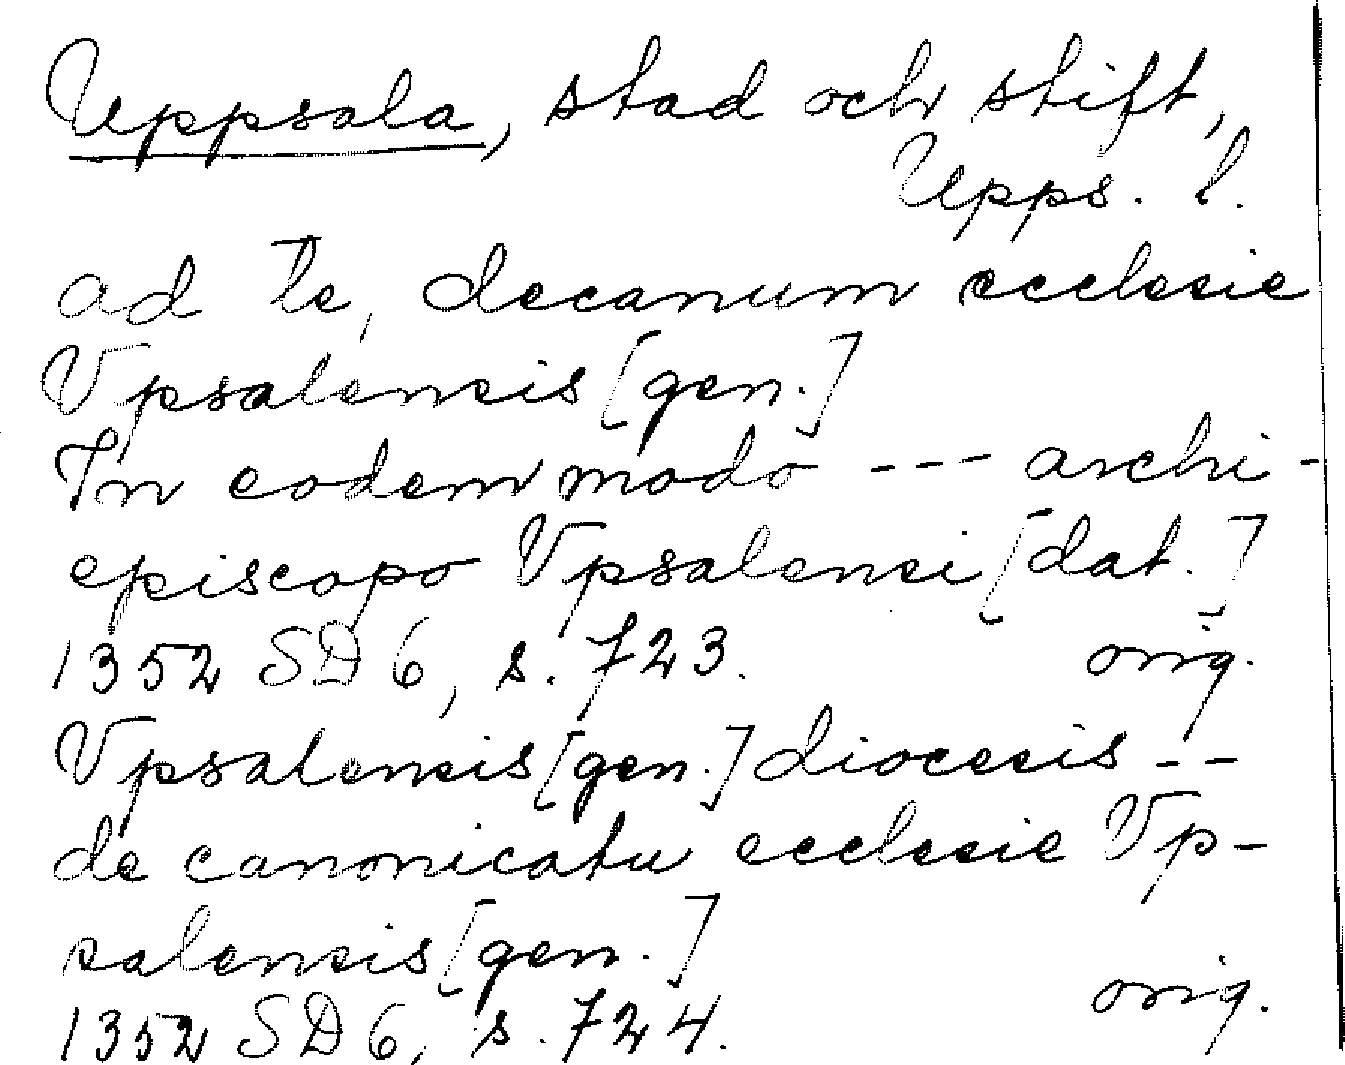 Uppsala, stad och stift,
Upps. l.
ad Te, decanum ecclesie
Vpsalensis [gen.]
In eodem modo --- archi-
episcopo Vpsalensi [dat.]
1352 SD 6, s. 723. orig.
Vpsalensis [gen.] diocesis --
de canonicatu ecclesie Vp-
salensis [gen.]
1352 SD 6, s. 724. orig.